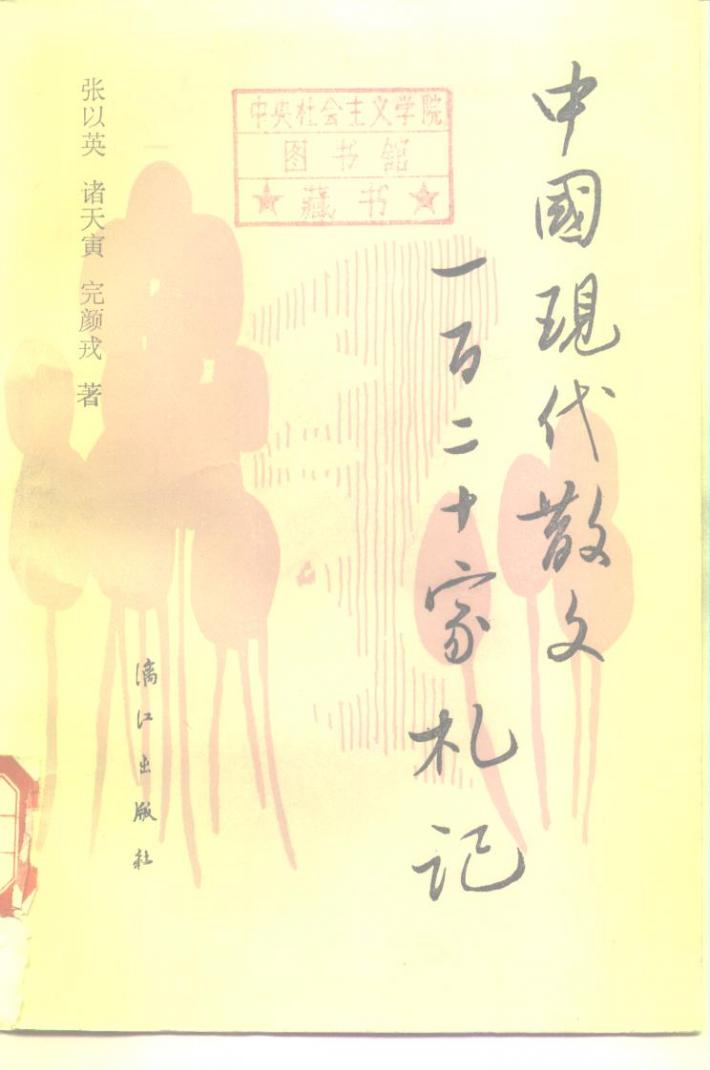 中國現代散文
一百二十家札记
中央社会主义学院
图书馆
★藏书★
张以英 诸天寅 完颜戎 著
漓江出版社